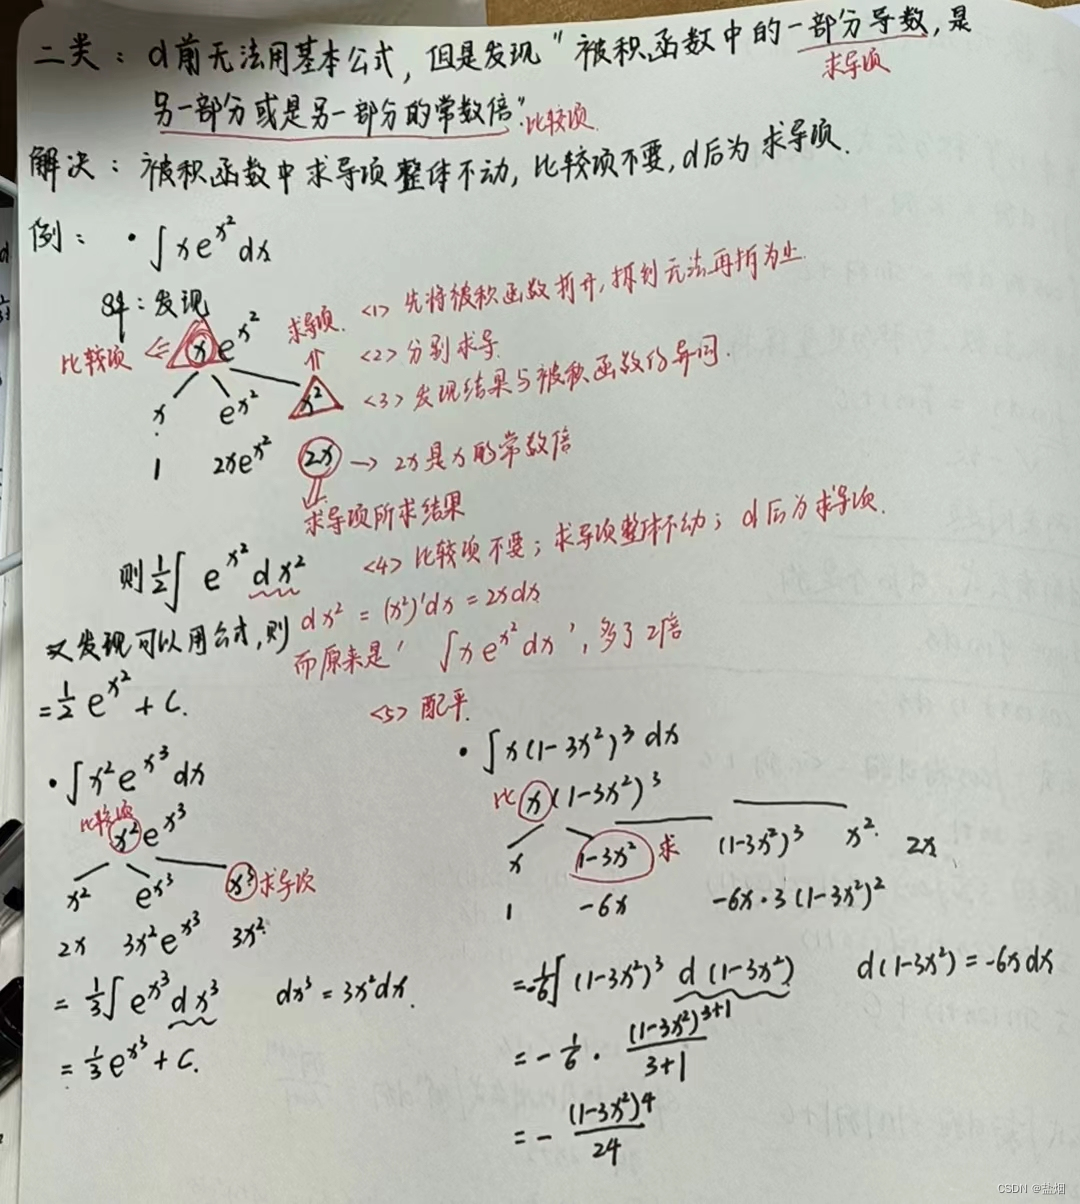 二类：d前无法用基本公式，但是发现"被积函数中的一部分导数，是
求导项
另一部分或是另一部分的常数倍".比较项
解决：被积函数中求导项整体不动，比较项不要，d后为求导项.
例：·∫xe^{x^2}dx
解：发现
<1> 先将被积函数拆开，拆到无法再拆为止.
比较项 ⇐ xe^{x^2} 求导项.
<2> 分别求导.
x e^{x^2} x^2
<3> 发现结果与被积函数的异同.
1 2xe^{x^2} 2x → 2x是x的常数倍
求导项所求结果
<4> 比较项不要；求导项整体不动；d后为求导项.
则 1/2∫e^{x^2}dx^2
dx^2 = (x^2)'dx = 2xdx
又发现可以用公式，则
而原来是'∫xe^{x^2}dx'，多了2倍
= 1/2 e^{x^2} + C.
<5> 配平.
·∫x^2e^{x^3}dx
比较项
x^2e^{x^3}
x^2 e^{x^3} x^3 求导项
2x 3x^2e^{x^3} 3x^2.
= 1/3∫e^{x^3}dx^3 dx^3 = 3x^2dx.
= 1/3 e^{x^3} + C.
·∫x(1-3x^2)^3 dx
比 x(1-3x^2)^3
x 1-3x^2 求 (1-3x^2)^3 x^2. 2x
1 -6x -6x·3(1-3x^2)^2
= -1/6∫(1-3x^2)^3 d(1-3x^2) d(1-3x^2) = -6xdx
= -1/6 · (1-3x^2)^{3+1}/(3+1)
= -(1-3x^2)^4/24
CSDN @盐烟